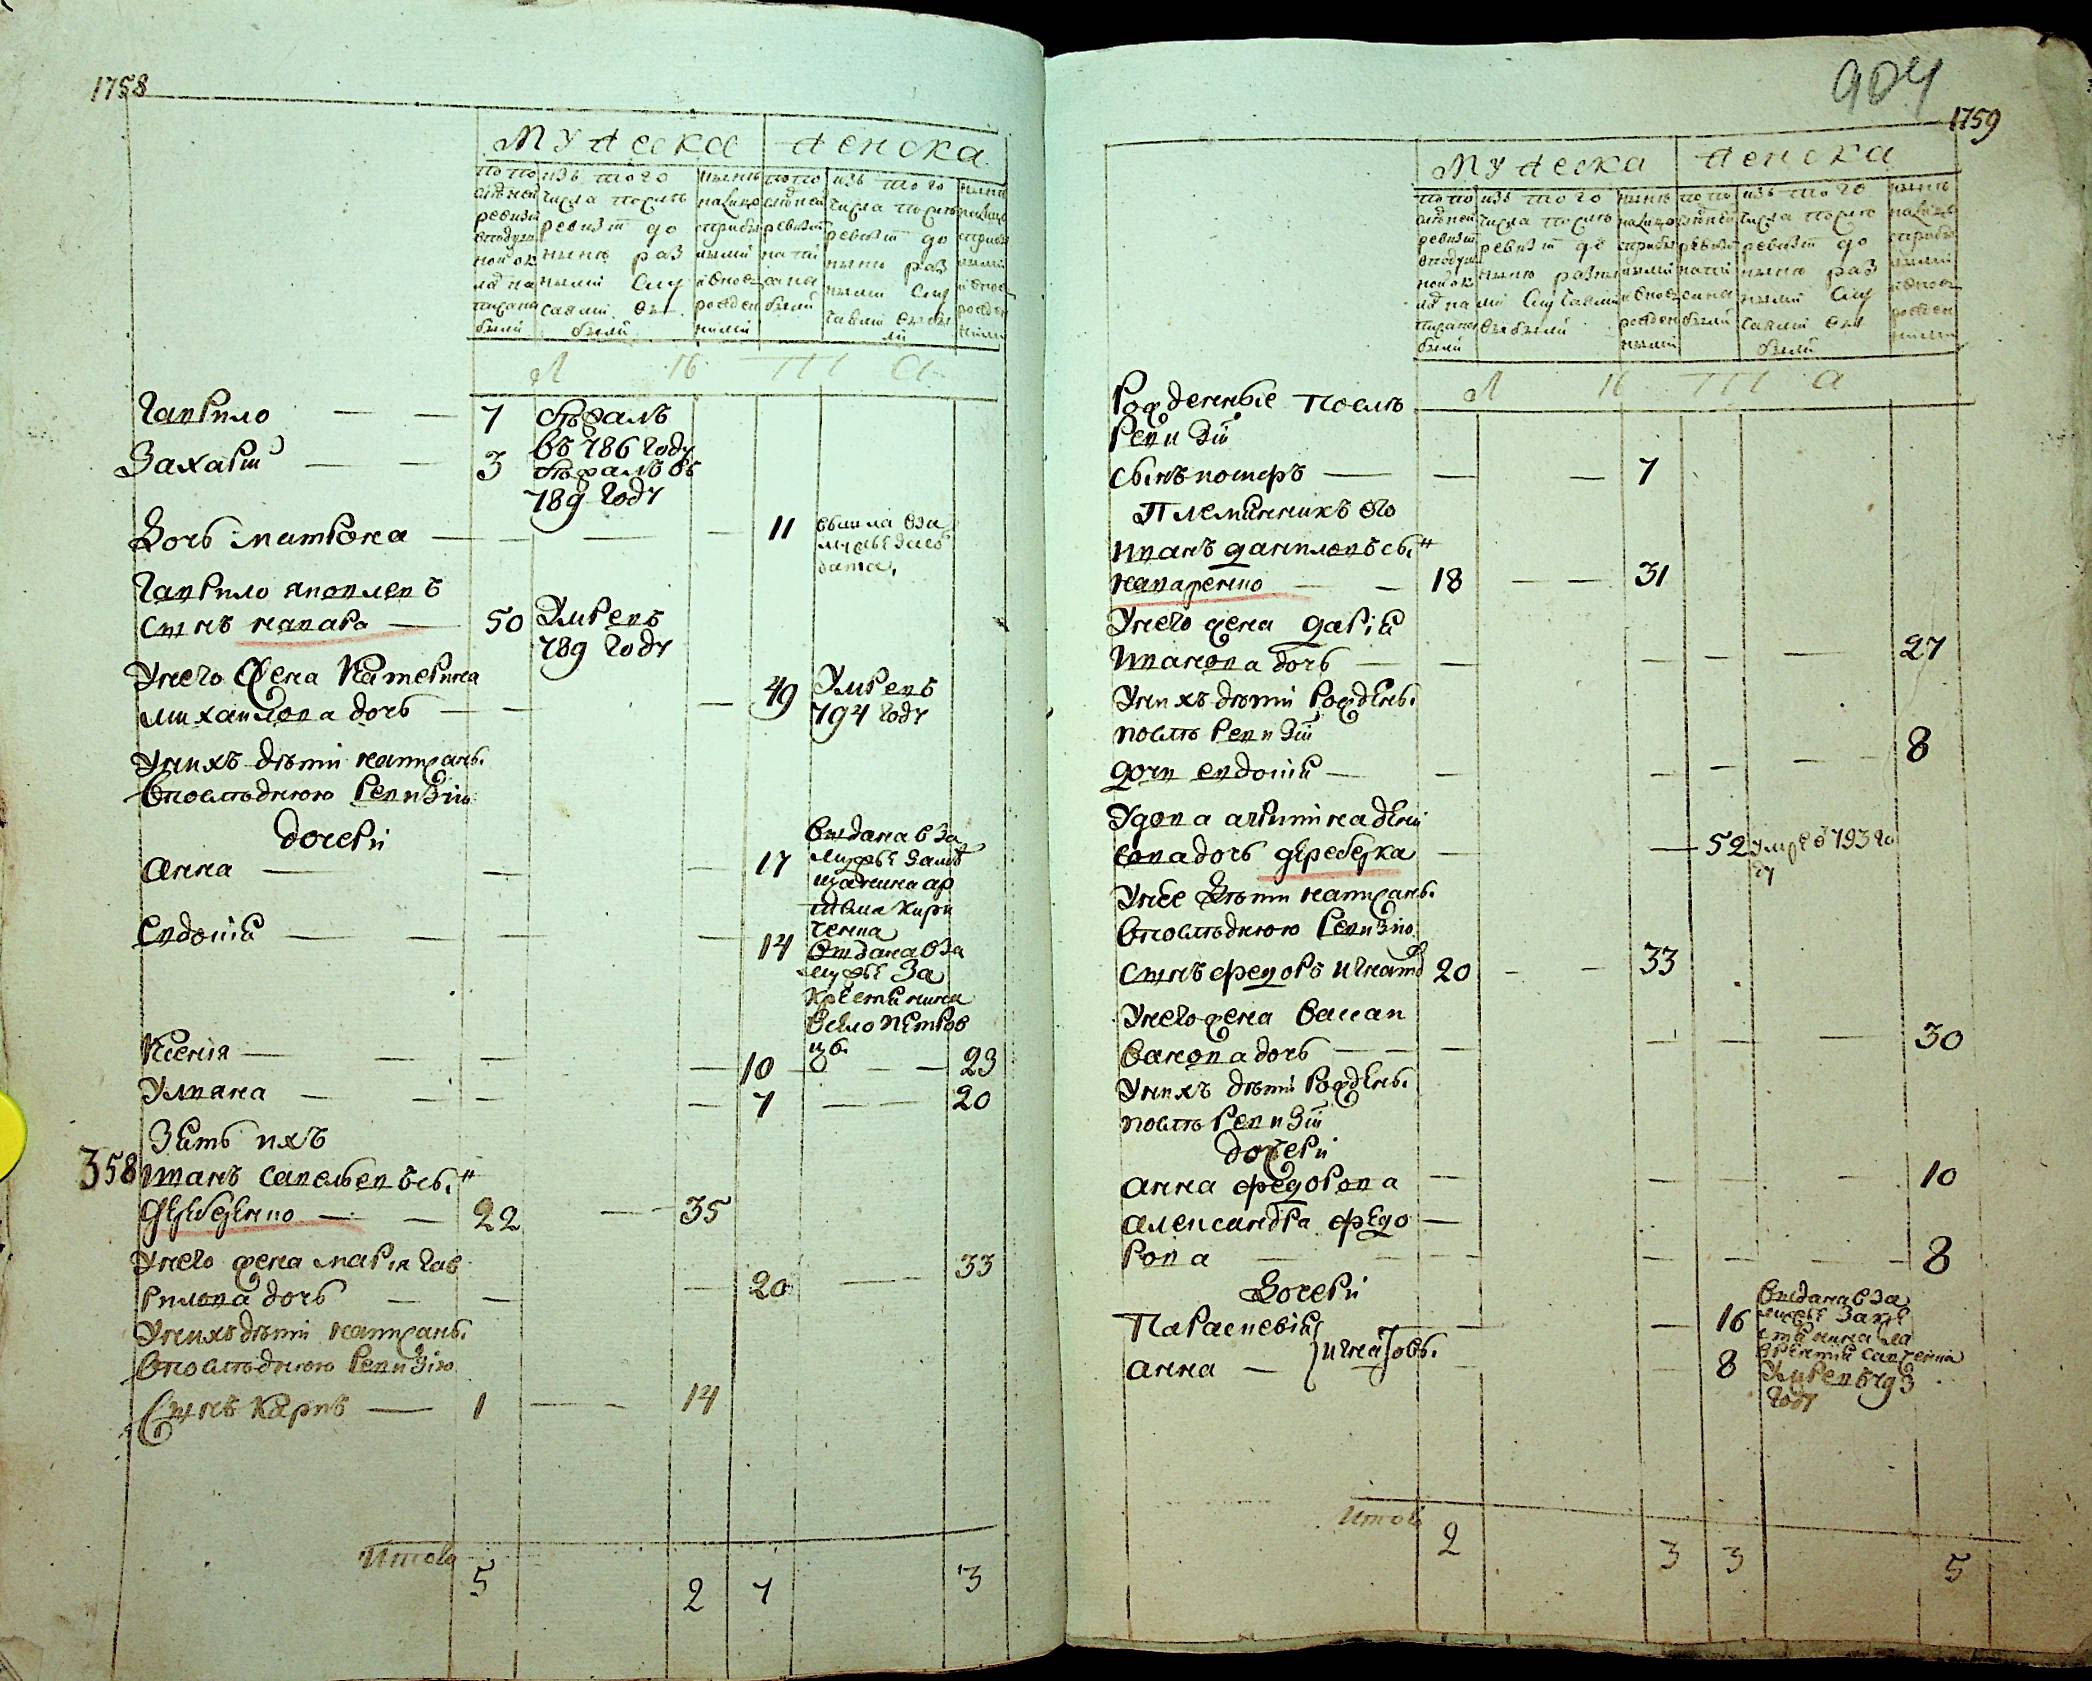 1758
мужеска женска
по по
следней
ревизіи
в подуш
ной ок
лад на
писано
было
изъ того
числа после
ревизіи до
ныне раз
ными слу
чаями вы
было
ныне
налицо
с прибы
лыми
и вновь
рожден
ными
по по
следней
ревизіи
пока
зано
было
изъ того
числа после
ревизіи до
ныне раз
ными слу
чаями выбы
ло
ныне
налицо
с прибы
лыми
и вновь
рожден
ными
л е т а
Гаврило — — 7 бежалъ
въ 786 году
Захарій — — 3 бежалъ въ
789 году
Дочь матрона — — — — 11 вышла вза
мужье засол
дата,
Гаврило яковлевъ
сынъ макара — 50 Умре въ
789 году
Унего жена Катерина
михаилова дочь — — — 49 Умре въ
794 году
Унихъ дети написаны
впоследнюю ревизію
дочери
Анна — — — 17 выдана вза
мужье заме
щанина ар
тема кири
чепка
Евдокія — — — — 14 выдана вза
мужье за
крестьянина
всело петров
цы
Ксенія — — — — 10 — — — 23
Уляна — — — — 7 — — 20
Зять ихъ
358 иванъ савельевъ сы"
жеребценко — — 22 — — 35
Унего жена марія гав
рилова дочь — — — 20 — — 33
Унихъ дети написаны
впоследнюю ревизію
Сынъ карпъ — 1 — — 14
Итого 5 2 7 3
904
1759
мужеска женска
по по
следней
ревизіи
в подуш
ной ок
лад на
писано
было
изъ того
числа после
ревизіи до
ныне разны
ми случаями
выбыло
ныне
налицо
с прибы
лыми
и вновь
рожден
ными
по по
следней
ревизіи
пока
зано
было
изъ того
числа после
ревизіи до
ныне раз
ными слу
чаями вы
было
ныне
налицо
с прибы
лыми
и вновь
рожден
ными
л е т а
Рожденные после
ревизіи
сынъ — — — 7
Племянникъ его
иванъ даниловъ сы"
— 18 — — 31
Унего жена дарія
иванова дочь — — — — — 27
Унихъ дети рожденъ
после ревизіи
дочь евдокія — — — — — 8
Удова
ева дочь жеребецка — — 52 умре въ 793 го
ду
Унее дети написаны
впоследнюю ревизію
сынъ федоръ игнатов 20 — — 33
Унего жена васса
ванова дочь — — — — — — 30
Унихъ дети рожденъ
после ревизіи
дочери
Анна федорова — — — — 10
Александра федо —
рова — — — — — — 8
Дочери
Параскевія — — 16 выдана вза
мужье закре
стьянина
игнатовы
Анна — — 8 Умре въ 793
году
Итого 2 3 3 5